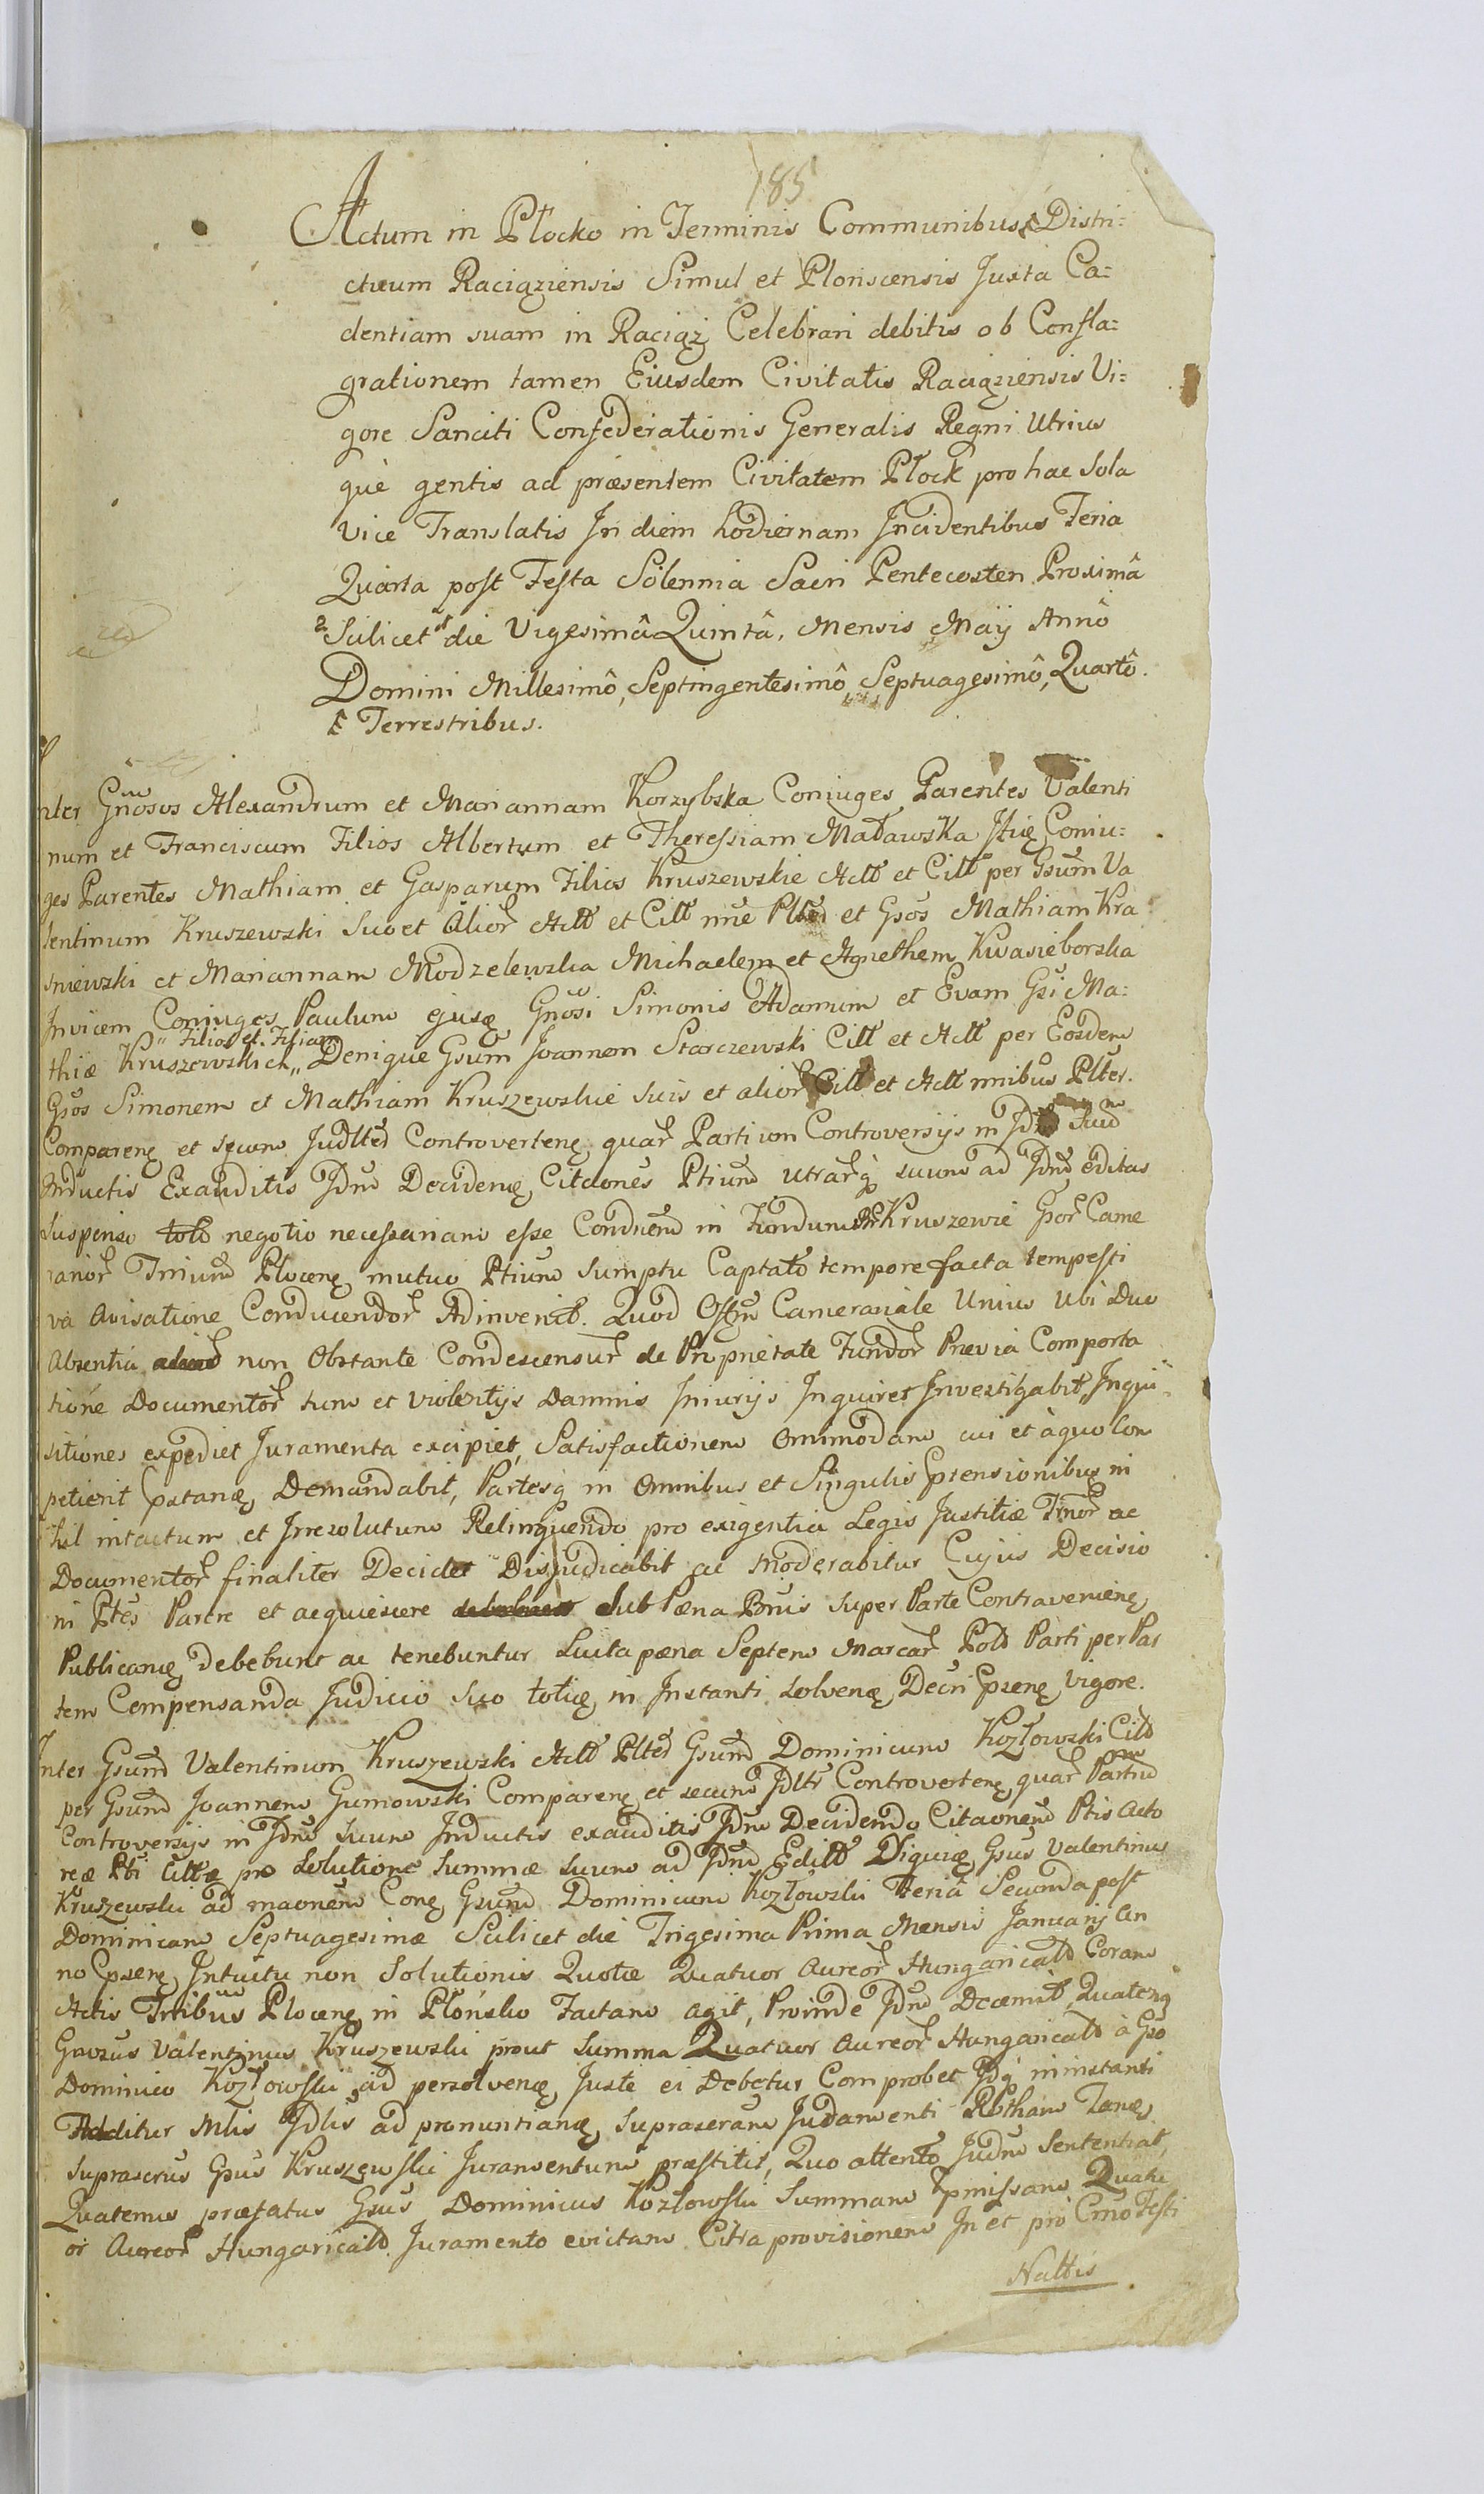 185
Actum in Płocko in Terminis Communibus Distri:
ctuum Raciąziensis Simul et Plonscensis Juxta Ca:
dentiam suam in Raciąż Celebrari debitis ob Confla:
grationem tamen Eiusdem Civitatis Raciąziensis Vi:
gore Sanciti Confederationis Generalis Regni Utrius
què gentis ad præsentem Civitatem Płock pro hac Sola
vice Translatis In diem hodiernam Incidentibus Feria
Quarta post Festa Solennia Sacri Pentecosten Proximâ
Scilicet die Vigesimâ Quintâ, Mensis Maij Annô
Domini Millesimô, Septingentesimô, Septuagesimô, Quartô.
Terrestribus.
nter Gnosos Alexandrum et Mariannam Korzybska Coniuges Parentes Valenti
num et Franciscum Filios Albertum et Theressiam Madawska Coniu:
ges Parentes Mathiam et Gasparum Filios Kruszewskie Actt et Citt per Gsum Va
lentinum Kruszewski Suo et Alior Actt et Citt nne et Gsos Mathiam Kra
sniewski et Mariannam Modzelewska Michaelem et Agnethem Kwasieborska
Invicem Coniuges Paulum ejusq Gnosi Simonis Adamum et Evam Gsi Ma:
Filios et Filiam
thiæ Kruszewskich Denique Gsum Joannem Starczewski Citt et Actt per Eosdem
Gsos Simonem et Mathiam Kruszewskie suis et alior Citt et Actt nnibus Pltes.
Comparenq et secum Judtted Controvertenq quar Partium Controversijs in Jdm Suum
Inductis Exauditis Jdm Decidenq Citaones Ptium utrarq suum ad Jdm editas
Suspenso toto negotio necessariam esse Conducend in Fundum Kruszewie Gsor Came
rarior Trrium Plocenq mutuo Ptium Sumptu Captato tempore facta tempesti
va Avisatione Conducendor Adinvenit. Quod Offm Camerariale Unius Ubi Duo
Absentia non Obstante Condescensur de Proprietate Fundor Prævia Comporta
tione Documentor tum et violentijs Damnis Iniurijs Inquiret Investigabit, Inqui
sitiones expediet Juramenta excipiet, Satisfactionem Omnimodam cui et à quo Com
petierit Demandabit, Partesq in Omnibus et Singulis prensionibus ni
hil intactum et Irresolutum Relinquendo pro exigentia Legis Justitiæ Trrer ac
Documentor finaliter Decidet Disjudicabit ac moderabitur Cujus Decisio
ni Ptes Parere et acquiescere Sub Pæna Bnis super Parte Contravenienq
Publicanq Debebunt ac tenebuntur Lucta pæna Septem Marcar Polo Parti per Par
tem Compensanda Judicio Suo totiq in Instanti Solvenq Decri Psenq vigore.
Inter Gsum Valentinum Kruszewski Actt Plted Gsum Dominicum Kozłowski Citt
per Gsum Joannem Gumowski Comparenq et secum Jdltr Controvertenq quar Partium
Controversijs in Jdm Suum Inductis exauditis Jdm Decidendo Citaonem Ptis Acto
reæ Pti Cittæ pro Solutione Summæ suum ad Jdm Editt Gsus Valentinus
Kruszewski ad maonem Conq Gsum Dominicum Kozłowski Feriâ Secunda post
Dominicam Septuagesimæ Scilicet die Trigesima Prima Mensis Januarij An
no Psenq Intuitu non Solutionis Quotæ Quatuor Aureor Hungaricald Coram
Actis Trribus Plocenq in Płońsko Factam agit, Proinde Jdm Decernit, Quatenq
Gnosus Valentinus Kruszewski prout Summa Quatuor Aureor Hungaricald à Gso
Dominico Kozłowski ad persolvenq Juste ei Debetur Comprobet Jdq in instanti
Additur Mlis Jdlis ad pronuntianq suprascram Juramenti Rotham Tanq
suprascrus Gsus Kruszewski Juramentum præstitit, Quo attento Judm Sententiat,
Quatenus præfatus Gsus Dominicus Kozłowski Summam pmissam Quatu
or Aureor Hungaricald Juramento evictam Citra provisionem In et pro Crno Festi
Nattis